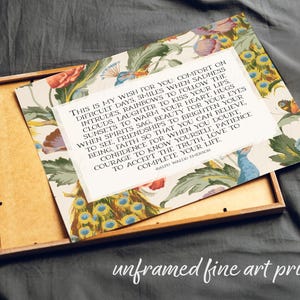 This is my wish for you: comfort on
difficult days, smiles when sadness
intrudes, rainbows to follow the
clouds, laughter to kiss your lips,
sunsets to warm your heart, hugs
when spirits sag, beauty for your eyes
to see, friendships to brighten your
being, faith so that you can believe,
confidence for when you doubt,
courage to know yourself, patience
to accept the truth, love to
complete your life.
RALPH WALDO EMERSON
unframed fine art pri